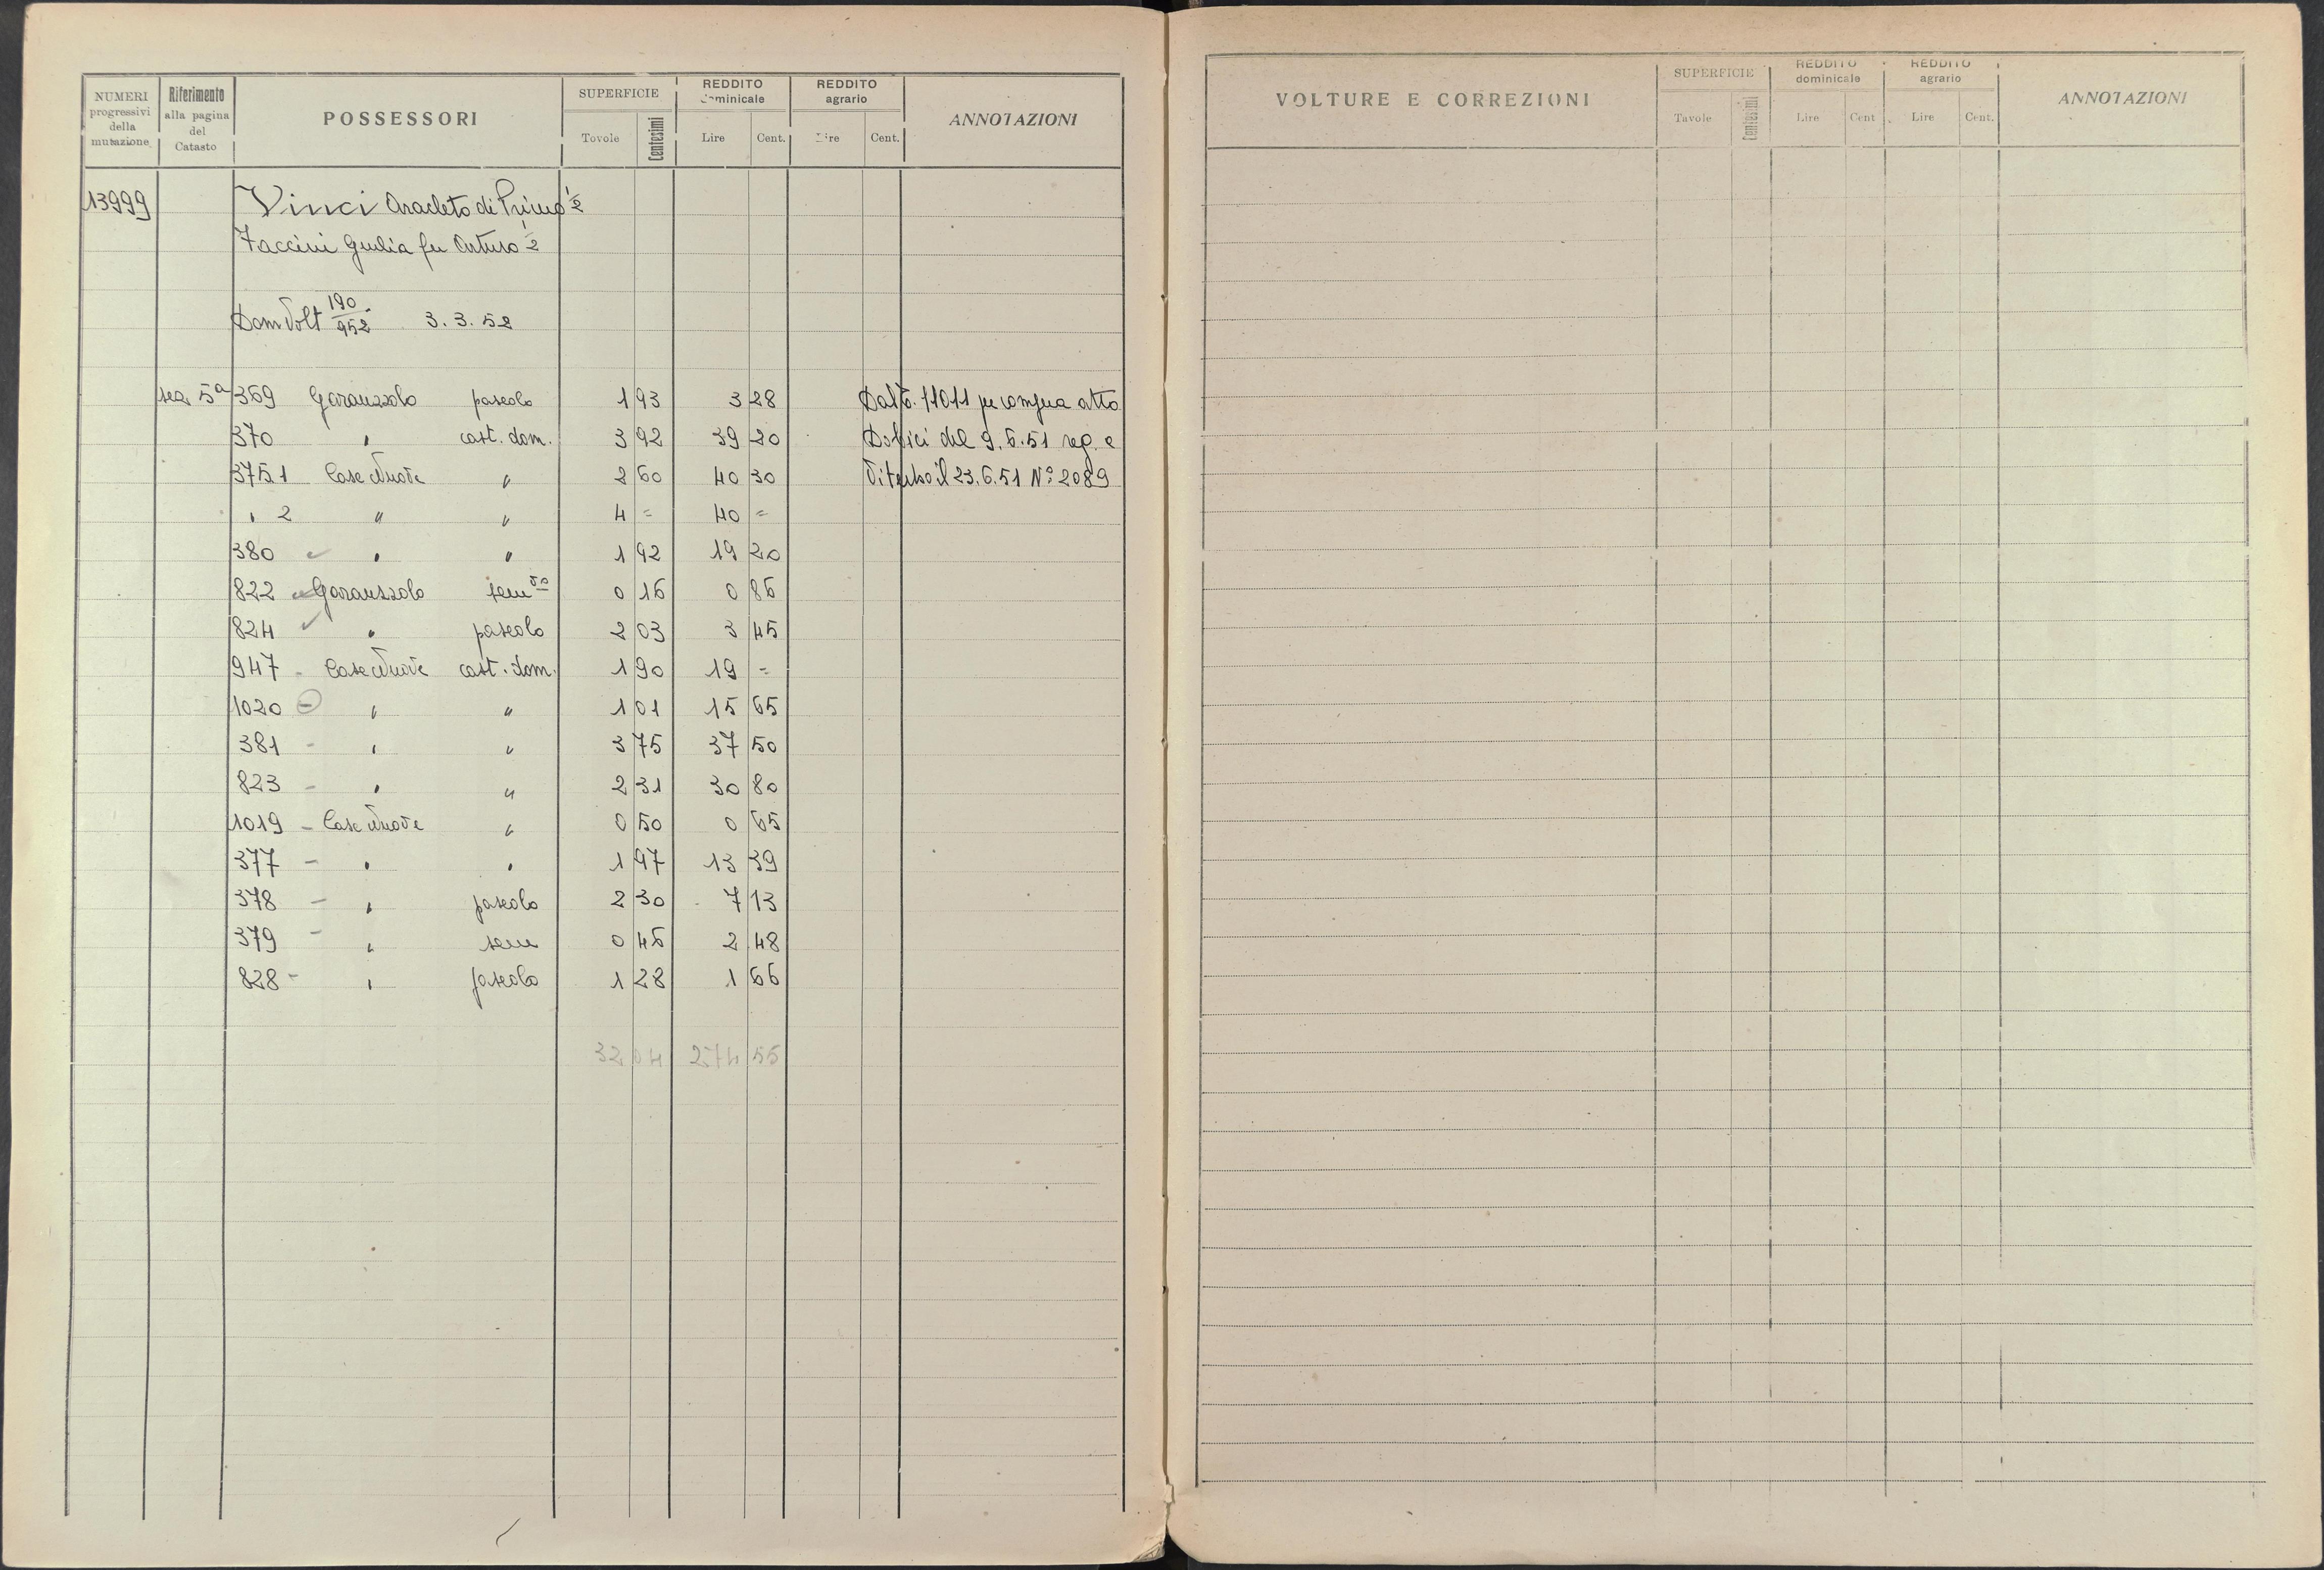 NUMERI progressivi della mutazione
Riferimento alla pagina del Catasto
POSSESSORI
SUPERFICIE Tovole Centesimi
REDDITO dominicale Lire Cent.
REDDITO agrario Lire Cent.
ANNOTAZIONI
13999 Vinci Anacleto di Primo 1/2
Faccini Giulia fu Arturo 1/2
Dom Volt 190/952 3.3.52
sez. 5a 369 Garauzzolo pascolo 1 93 3 28 Dal 11011 per compra atto
370 " cast. dom. 3 92 39 20 Dolfici del 9.6.51 reg. a
375.1 Case Nuove " 2 60 40 30 Viterbo il 23.6.51 N° 2089
" 2 " " 4 = 40 =
380 " " 1 92 19 20
822 Garauzzolo semvo 0 16 0 86
824 " pascolo 2 03 3 45
947 - Case Nuove cast. dom. 1 90 19 =
1020 " " 1 01 15 65
381 - " " 3 75 37 50
823 - " " 2 31 30 80
1019 - Case Nuove " 0 50 0 65
377 - " " 1 97 13 39
378 - " pascolo 2 30 7 13
379 - " sem 0 46 2 48
828 - " pascolo 1 28 1 66
32 04 274 55
VOLTURE E CORREZIONI
SUPERFICIE Tavole Centesimi
REDDITO dominicale Lire Cent
REDDITO agrario Lire Cent.
ANNOTAZIONI